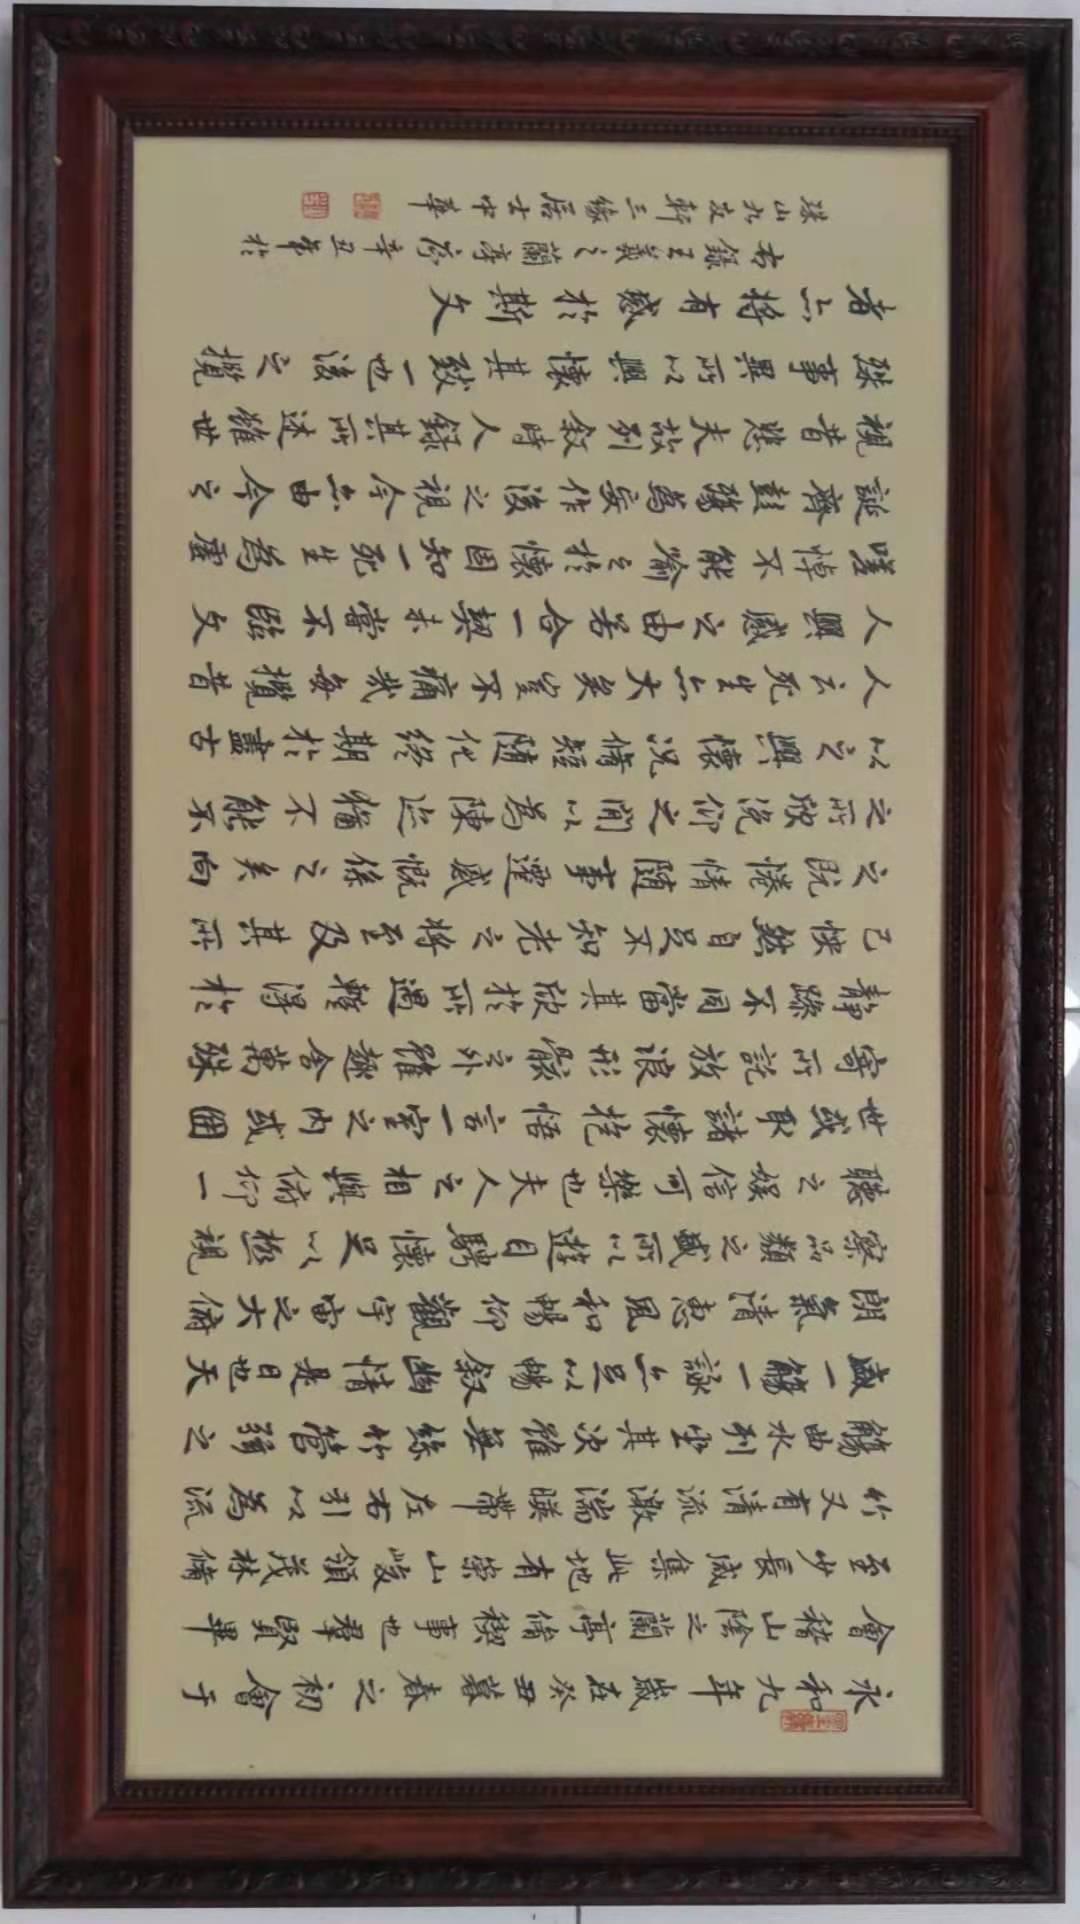 永和九年歲在癸丑暮春之初會于
會稽山陰之蘭亭脩禊事也羣賢畢
至少長咸集此地有崇山峻領茂林脩
竹又有清流激湍暎帶左右引以為流
觴曲水列坐其次雖無絲竹管弦之
盛一觴一詠亦足以暢敘幽情是日也天
朗氣清惠風和暢仰觀宇宙之大俯
察品類之盛所以遊目騁懷足以極視
聽之娛信可樂也夫人之相與俯仰一
世或取諸懷抱悟言一室之內或因
寄所託放浪形骸之外雖趣舍萬殊
靜躁不同當其欣於所遇蹔得於
己怏然自足不知老之將至及其所
之既惓情隨事遷感慨係之矣向
之所欣俛仰之間以為陳迹猶不能不
以之興懷況脩短隨化終期於盡古
人云死生亦大矣豈不痛哉每攬昔
人興感之由若合一契未嘗不臨文
嗟悼不能喻之於懷固知一死生為虛
誕齊彭殤為妄作後之視今亦由今之
視昔悲夫故列敘時人錄其所述雖世
殊事異所以興懷其致一也後之攬
者亦將有感於斯文
右錄王羲之蘭亭序辛丑年於
珠山九友軒三緣居士中華